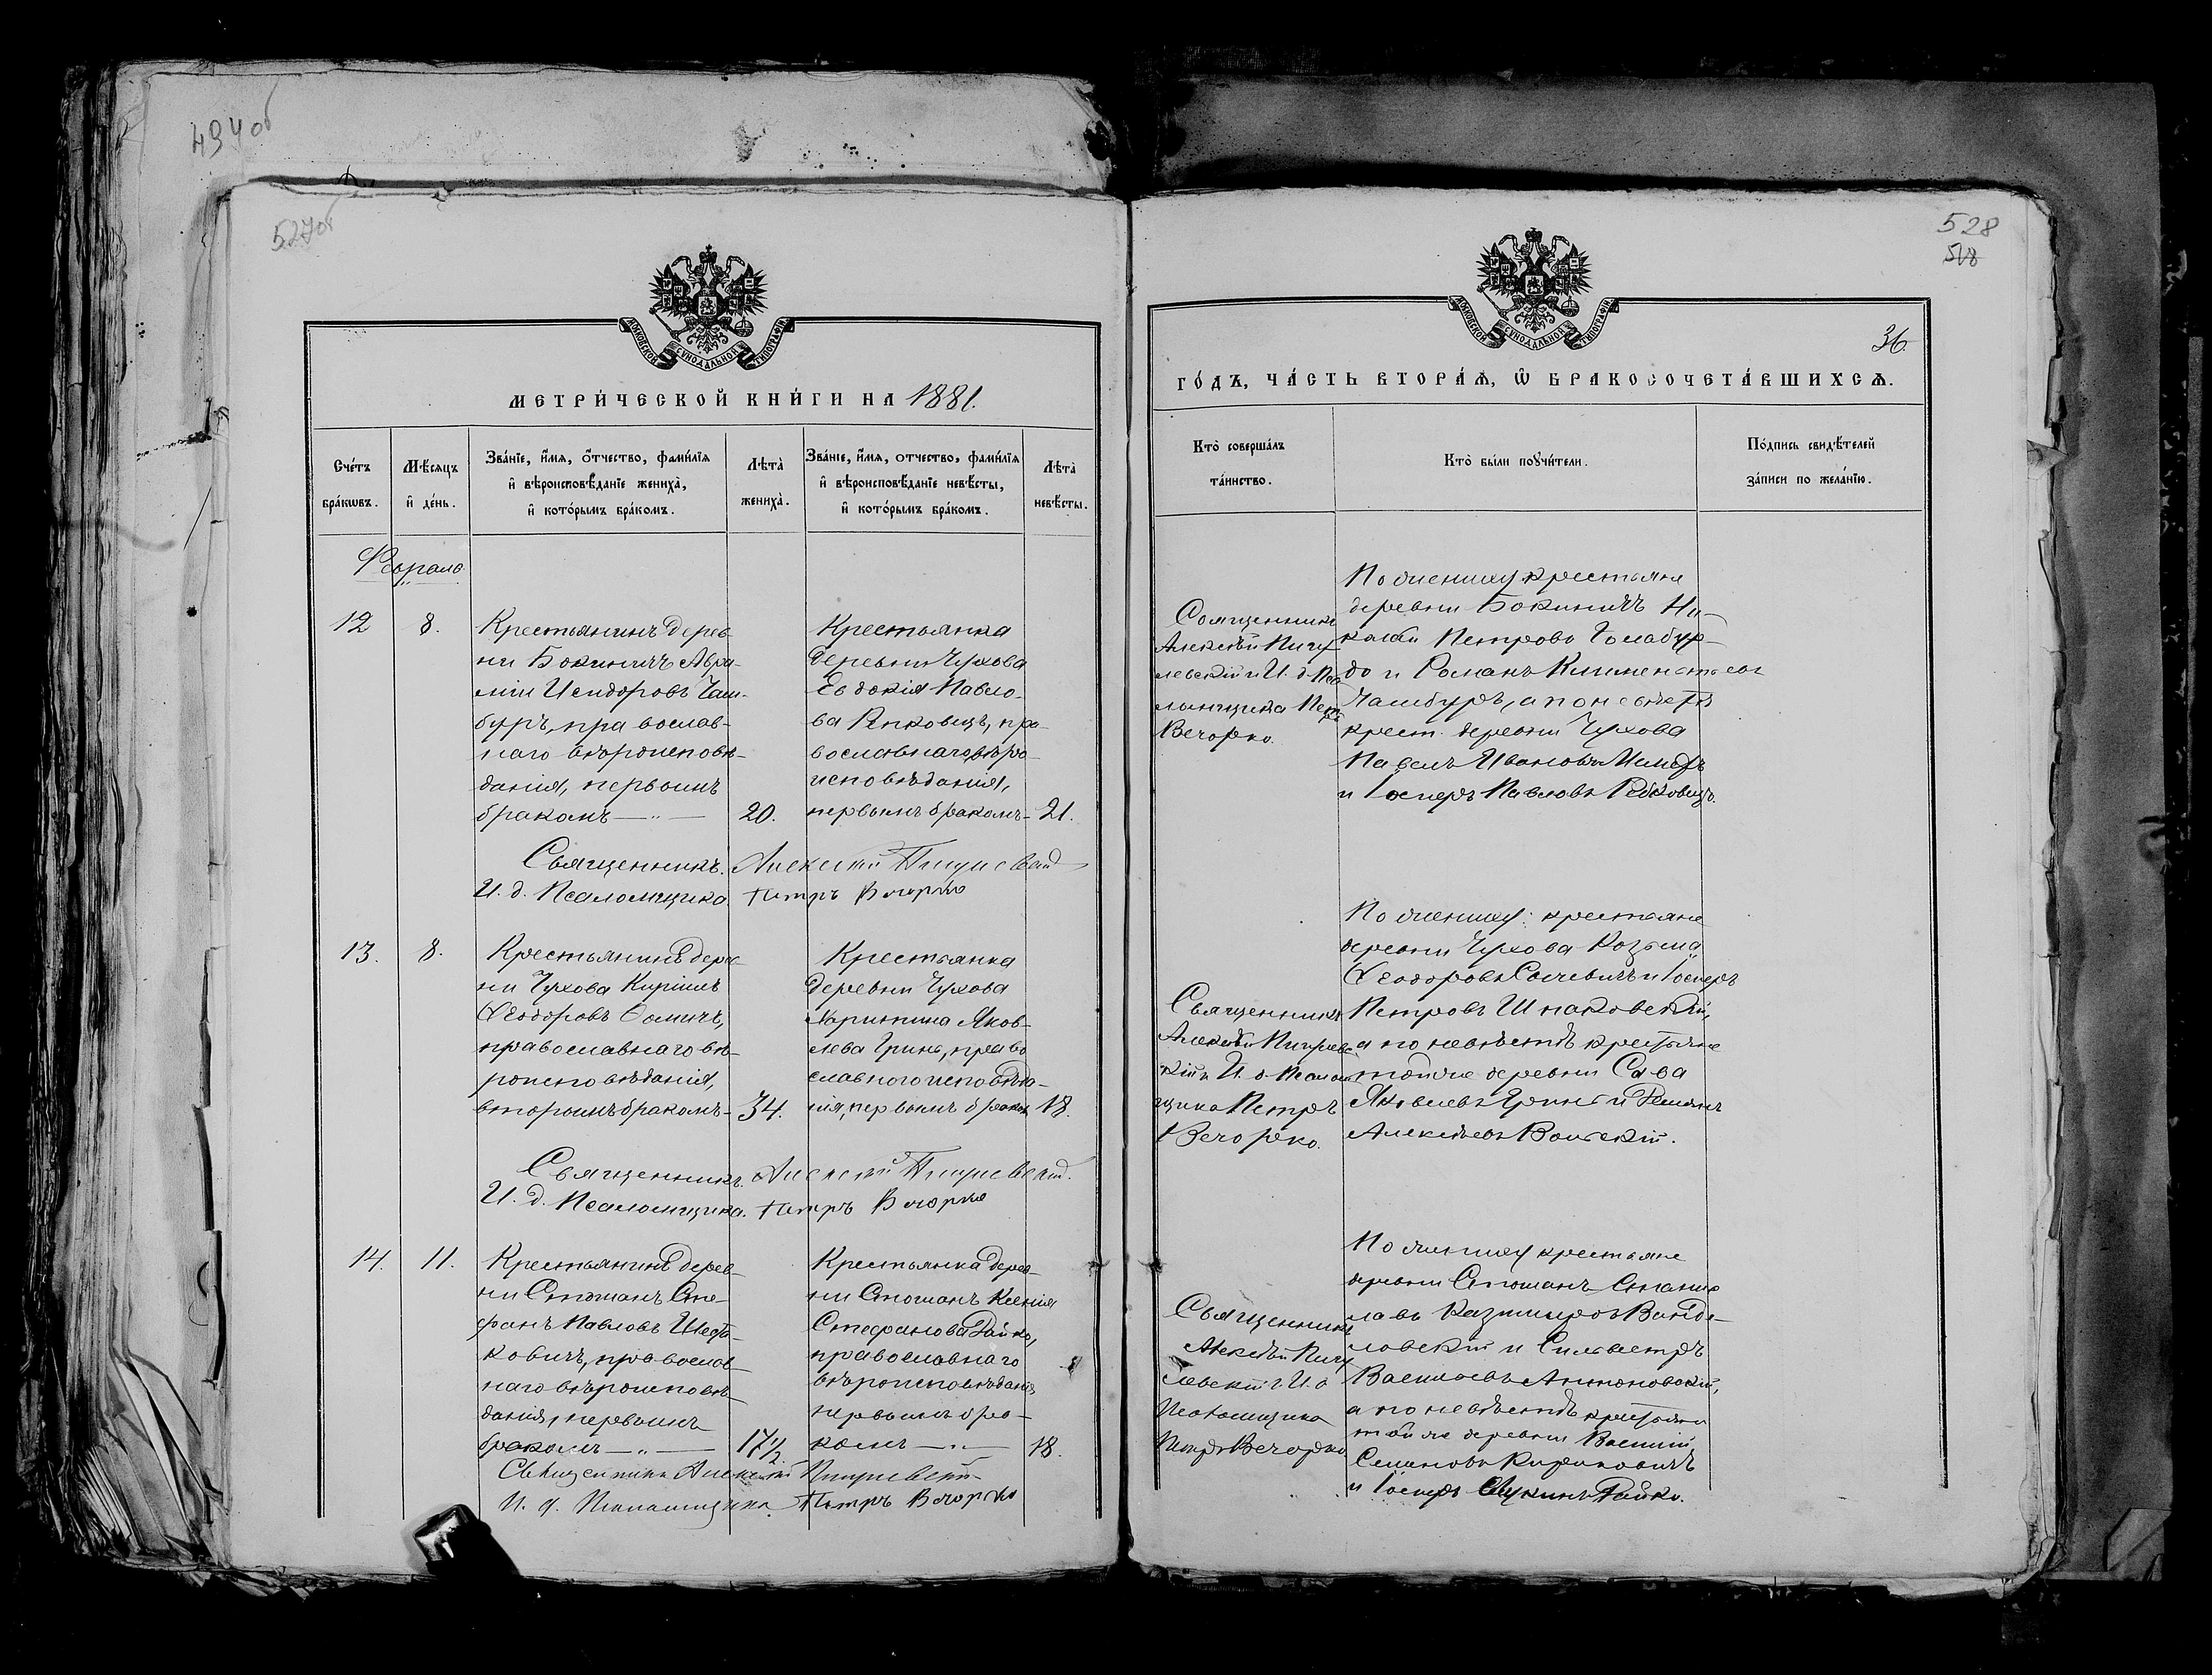 494 об
527 об
МОСКОВСКОЙ СѴНОДАЛЬНОЙ ТИПОГРАФІИ
МЕТРИ́ЧЕСКОЙ КНИ́ГИ НА 1881.
Сче́тъ бра́кѡвъ.
Мѣ́сяцъ и҆ де́нь.
Зва́нїе, и҆́мѧ, ѻ҆́тчество, фами́лїѧ и҆ вѣроисповѣ́данїе жениха̀, и҆ кото́рымъ бра́комъ.
Лѣта̀ жениха̀.
Зва́нїе, и҆́мѧ, отчество, фами́лїѧ и҆ вѣроисповѣ́данїе невѣ́сты, и҆ кото́рымъ бра́комъ.
Лѣта̀ невѣ́сты.
Февраль
12
8.
Крестьянинъ дерев
ни Бокиничъ Авра-
мій Исидоровъ Чам-
буръ, православ-
наго вѣроисповѣ-
данія, первымъ
бракомъ —„—
20.
Крестьянка
деревни Чухова
Евдокія Павло-
ва Репковецъ, пра-
вославнаго вѣро-
исповѣданія,
первымъ бракомъ-
21.
Священникъ. Алексѣй
И. д. Псаломщика Петръ Вечорко
13.
8.
Крестьянинъ дерев-
ни Чухова Кириллъ
Ѳеодоровъ Ѳомичъ,
православнаго вѣ-
роисповѣданія,
вторымъ бракомъ-
34.
Крестьянка
деревни Чухова
Яков-
лева Гринь, право
славного исповѣда-
нія, первымъ браком
18.
Священникъ. Алексѣй
И. д. Псаломщика. Петръ Вечорко
14.
11.
Крестьянинъ дерев-
ни Стошанъ Сте-
фанъ Павловъ Шеф-
ковичъ, православ-
наго вѣроисповѣ-
данія, первымъ
бракомъ —„—
17½
Крестьянка дерев-
ни Стошанъ Ксенія
Стефанова Райко,
православнаго
вѣроисповѣданія
первымъ бра-
комъ —„—
18.
Священникъ Алексѣй
И. д. Псаломщика Петръ Вечорко
528
518
МОСКОВСКОЙ СѴНОДАЛЬНОЙ ТИПОГРАФІИ
36.
ГО́ДЪ, ЧА́СТЬ ВТОРА́Ѧ, Ѡ҆ БРАКОСОЧЕТА́ВШИХСѦ.
Кто̀ соверша́лъ та́инство.
Кто̀ бы́ли пору҆чи́тели.
По́дпись свидѣ́телей за́писи по жела́нїю.
Священникъ
Алексѣй Пигу-
левскій и И. д. Пса
ломщика Петръ
Вечорко.
По жениху крестьяне
деревни Бокиничъ Ни-
колай Петровъ
до и Романъ Климентьевъ
Чамбуръ, а по невѣстѣ
крест. деревни Чухова
Павелъ Ивановъ
и Іосифъ Павловъ Репковецъ.
Священникъ
Алексѣй Пигулевс-
кій и И. д. Псалом
щика Петръ
Вечорко.
По жениху: крестьяне
деревни Чухова Козьма
Ѳеодоровъ и Іосифъ
Петровъ Шпаковскій,
а по невѣстѣ крестьяне
той же деревни Сава
Яковлевъ Гринь и Демьянъ
Алексѣевъ
Священникъ
Алексѣй Пигу
левскій и И. д
Псаломщика
Петръ Вечорко
По жениху крестьяне
деревни Стошанъ Станис
лавъ Казимировъ
ловскій и Сильвестръ
Васильевъ Антоновскій,
а по невѣстѣ крестьяне
той же деревни Василій
Семеновъ
и Іосифъ Райко.